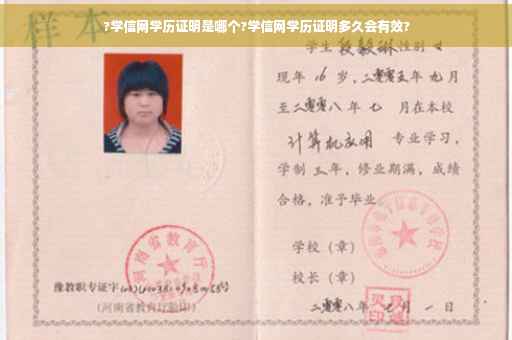 ?学信网学历证明是哪个?学信网学历证明多久会有效?
样本
学生 段毅琳 性别 女
现年 16 岁,二零零五年 九月
至二零零八年 七 月在本校
计算机应用 专业学习,
学制 三 年,修业期满,成绩
合格,准予毕业
学校(章)
校长(章)
二零零八年 七 月 一 日
河南省教育厅
豫教职专证字
(河南省教育厅验印)